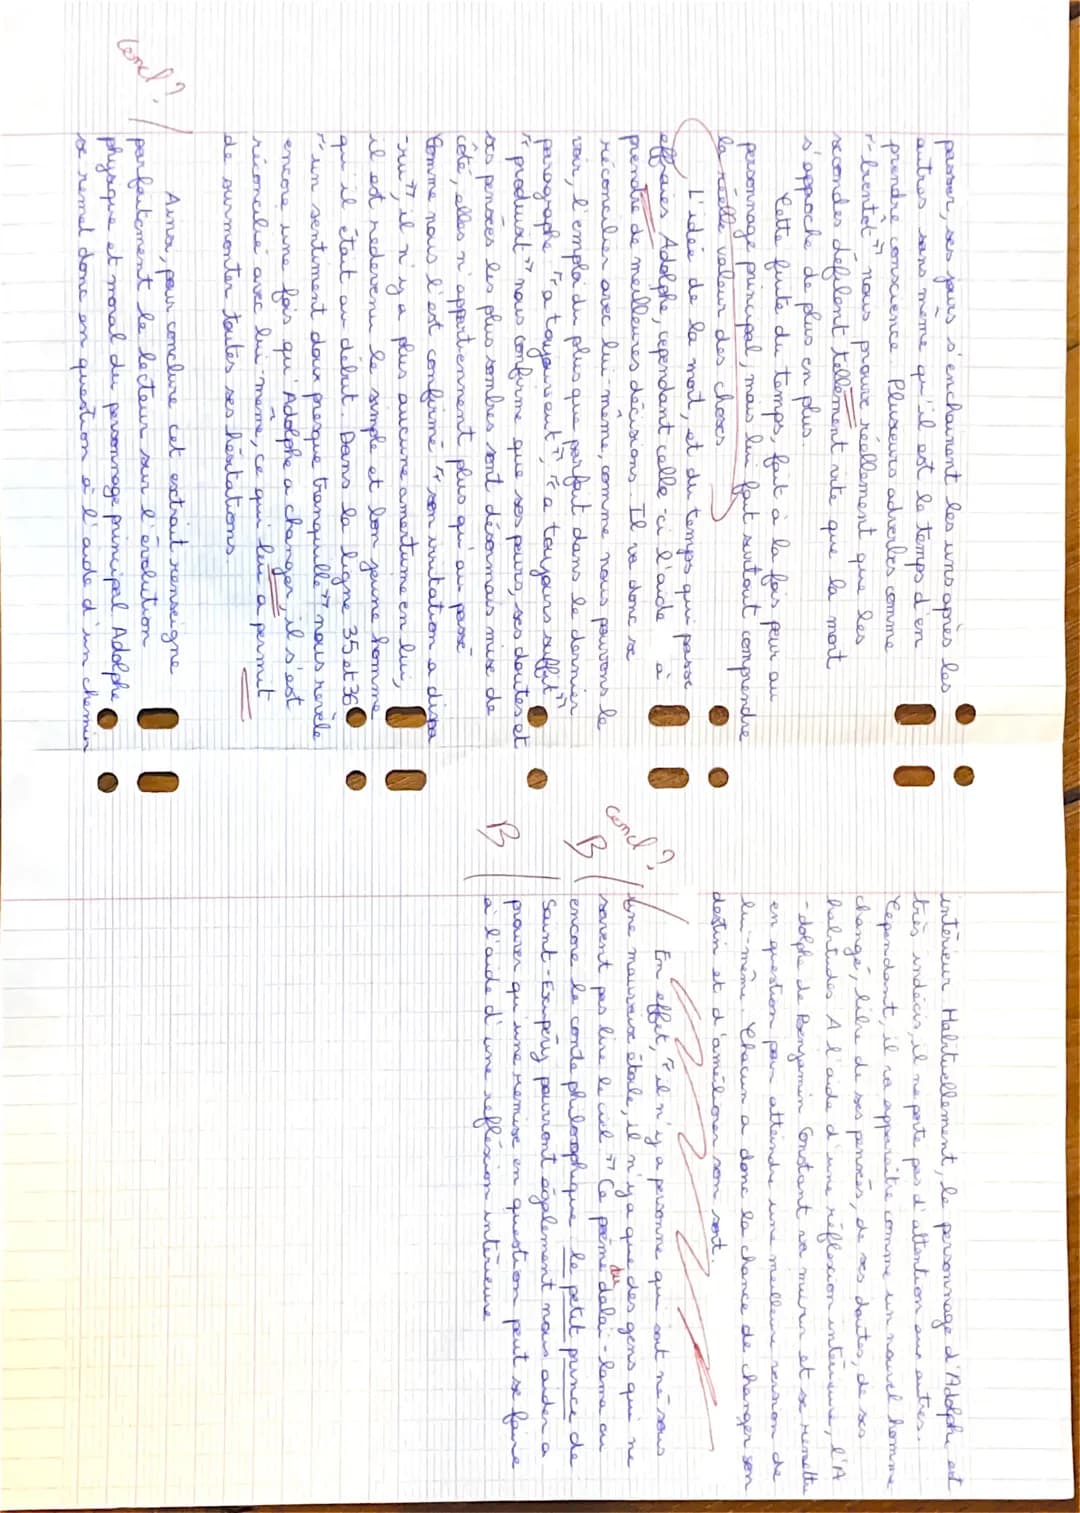 passer, ses jours s'enchainent les uns après les
autres sans même qu'il est le temps d'en
prendre conscience. Plusieurs adverbes comme
"bientôt" nous prouve réellement que les
secondes défilent tellement vite que la mort
s'approche de plus en plus.
Cette fuite du temps, fait à la fois peur au
personnage principal, mais lui fait surtout comprendre
la réelle valeur des choses.
L'idée de la mort, et du temps qui passe
effraies Adolphe, cependant celle-ci l'aide à
prendre de meilleures décisions. Il va donc se
réconcilier avec lui-même, comme nous pouvons le
voir, l'emploi du plus que parfait dans le dernier
paragraphe "a toujours eut", "a toujours suffit"
"produist" nous confirme que ses peurs, ses doutes et
ses pensées les plus sombres sont désormais mise de
côté, elles n'appartiennent plus qu'au passé
Comme nous l'est confirmé "son irritation a dispa
-ru", il n'y a plus aucune amertume en lui,
il est redevenu le simple et bon jeune homme
qu'il était au début. Dans la ligne 35 et 36
"un sentiment doux presque tranquille" nous revèle
encore une fois qu'Adolphe a changer, il s'est
réconcilié avec lui-même, ce qui lui a permit
de surmonter toutes ses hésitations.
Concl? /
Ainsi, pour conclure cet extrait renseigne
parfaitement le lecteur sur l'évolution
physique et moral du personnage principal Adolphe
se remet donc en question à l'aide d'un chemin
intérieur Habituellement, le personnage d'Adolphe est
très indécis, il ne porte pas d'attention aux autres.
Cependant, il va apparaitre comme un nouvel homme
changé, libre de ses pensées, de ses doutes, de ses
habitudes A l'aide d'une réflexion intérieure, l'A
-dolphe de Benjamin Constant va murir et se remettre
en question pour atteindre une meilleure version de
lui-même. Chacun a donc la chance de changer son
destin et d'améliorer son sort.
Concl? /
En effet, "il n'y a personne qui soit né sous
une mauvaise étoile, il n'y a que des gens qui ne
savent pas lire le ciel" Ce poème du dalai-lama ou
B
encore le conte philosophique le petit prince de
Saint-Exupéry pourront également nous aider a
prouver qu'une remise en question peut se faire
B
à l'aide d'une refléxion intérieure